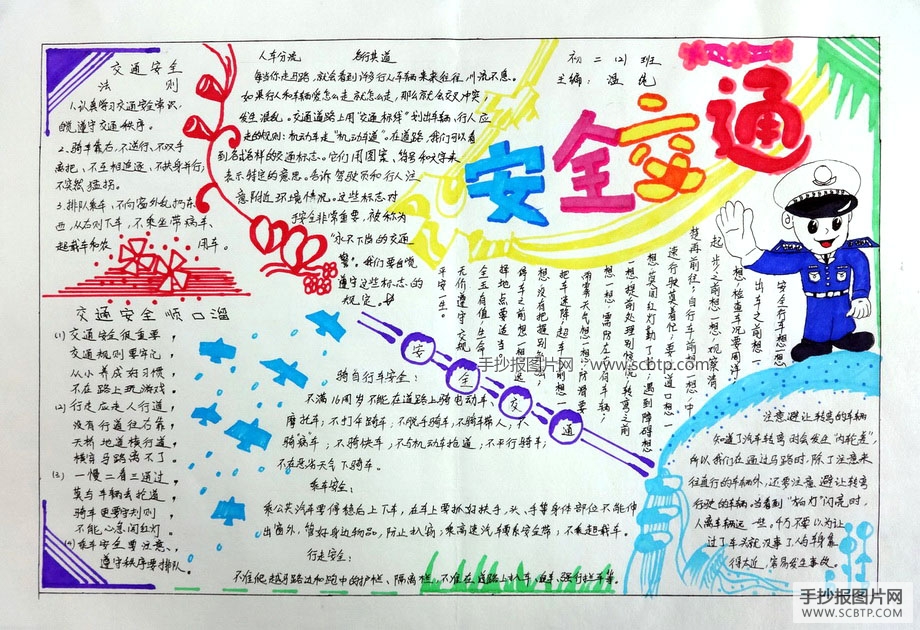 交通安全
法则
1.认真学习交通安全常识,
自觉遵守交通秩序。
2、骑车靠右,不逆行、不双手
离把,不互相追逐、不扶身并行;
不突然猛拐。
3.排队乘车,不向窗外乱扔东
西,从右则下车,不乘坐带病车、
超载车和农用车。
交通安全顺口溜
(1)交通安全很重要,
交通规则要牢记,
从小养成好习惯,
不在路上玩游戏。
(2)行走应走人行道,
没有行道往右靠,
天桥地道横行道,
横穿马路离不了。
(3)一慢二看三通过,
莫与车辆去抢道,
骑车更要守则则,
不能心急闯红灯
(4)乘车安全要注意、
遵守秩序要排队。
人车分流 各行其道
每当你走马路,就会看到许多行人车辆来来往往,川流不息。
如果行人和车辆爱怎么走就怎么走,那么就会交叉冲突,
发生混乱。交通道路上用"交通标线"划出车辆、行人应
走的规则:机动车走"机动车道"。在道路,我们可以看
到各式各样的交通标志。它们用图案、符号和文字来
表示特定的意思。告诉驾驶员和行人注
意附近环境情况。这些标志对
安全非常重要,被称为
"永不下岗的交通
警"。我们要自觉
遵守这些标志的
规定。
初二(2)班
主编:
安全交通
安全行车想一想
出车之前想一想,检查车况要周详;
起步之前想一想,观察清
楚再前往;自行车前想一想,中
速行驶莫着忙;要过道口想一
想,莫闯红灯勤了望;遇到障碍想
一想,提前处理别惊慌;转弯之前
想一想,需防左右有车辆;
雨雾天气想一想,防滑要
把车速降;超车之前想一
想,没有把握别勉强;
停车之前想一想,选
择地点要适当;
全五有值,生命
无价遵守交规
平安一生。
安
全
交
通
骑自行车安全:
不满16周岁不能在道路上骑电动车、
摩托车;不打伞骑车;不脱手骑车;不骑车带人;不
骑病车;不骑快车;不与机动车抢道;不平行骑车;
不在恶劣天气下骑车。
乘车安全:
乘公共汽车要停稳后上下车,在车上要抓好扶手,头、手等身体部位不能伸
出窗外,管好身边物品,防止扒窃;乘高速汽车要系安全带;不乘超载车。
行走安全:
不准爬越马路边和路中的护栏、隔离栏,不准在道路上扒车、追车、强行拦车等。
注意避让转弯的车辆
知道了汽车转弯时会发生"内轮差",
所以我们在通过马路时,除了注意来
往直行的车辆外,还要注意避让转弯
行驶的车辆。当看到"拐灯"闪亮时,
人离车辆远一些。千万不要以为让
过了车头就没事了,人与车身靠
得太近,容易发生事故。
手抄报图片网:www.scbtp.com
手抄报图片网
WWW.SCBTP.COM